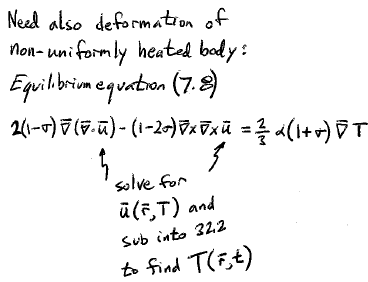 Need also deformation of
non-uniformly heated body:
Equilibrium equation (7.8)
2(1-σ) ∇̄(∇̄·ū) - (1-2σ) ∇̄×∇̄×ū = 2/3 α(1+σ) ∇̄T
solve for
ū(r̄,T) and
sub into 32.2
to find T(r̄,t)